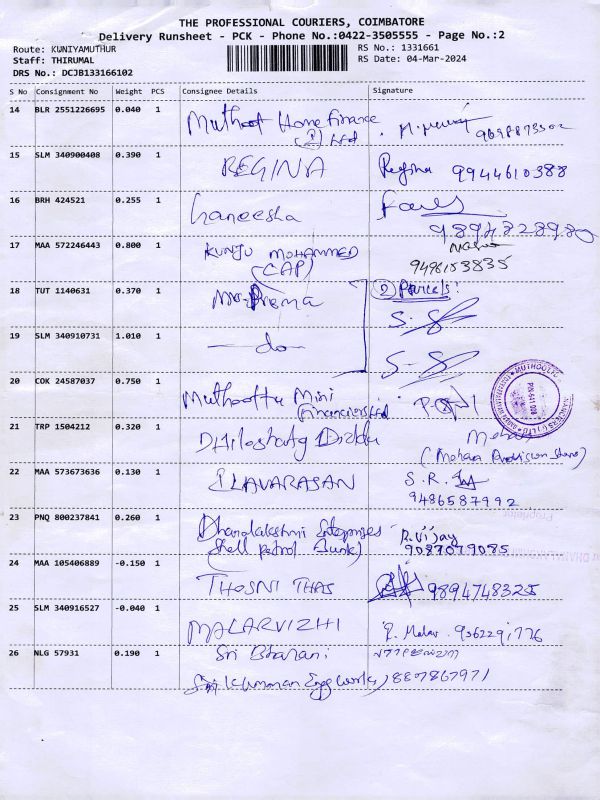 THE PROFESSIONAL COURIERS, COIMBATORE
Delivery Runsheet - PCK - Phone No.:0422-3505555 - Page No.:2
Route: KUNIYAMUTHUR
RS No.: 1331661
Staff: THIRUMAL
RS Date: 04-Mar-2024
DRS No.: DCJB133166102
S No Consignment No Weight PCS Consignee Details Signature
14 BLR 2551226695 0.040 1 Muthoot Home Finance
(I) Ltd
15 SLM 340900408 0.390 1 REGINA Regina 9944610388
16 BRH 424521 0.255 1 Ganeesha
9894828980
17 MAA 572246443 0.800 1 KUNJU MOHAMMED
(CAP) 9496153835
18 TUT 1140631 0.370 1 Mr. Prema (2) Parcels:
19 SLM 340910731 1.010 1 —do—
20 COK 24587037 0.750 1 Muthoottu Mini
Financiers Ltd
21 TRP 1504212 0.320 1
22 MAA 573673636 0.130 1 ELAVARASAN S.R.
9486587992
23 PNQ 800237841 0.260 1 Dhanalakshmi Enterprises R. Vijay
(Shell Petrol Bunk) 9087079085
24 MAA 105406889 -0.150 1 THOSNI THAS 9894748325
25 SLM 340916527 -0.040 1 MALARVIZHI
26 NLG 57931 0.190 1 Sri Bharani
Engg Works) 8807867971